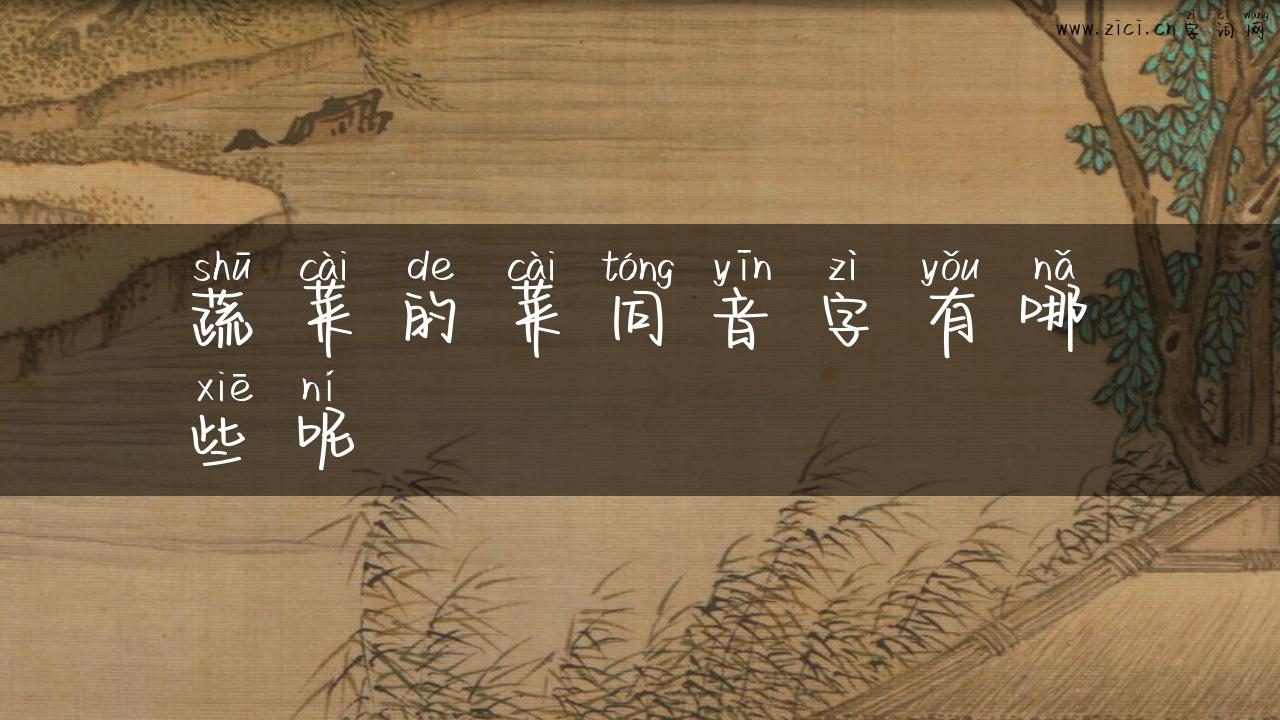 zì cí wǎng
www.zici.cn字词网
shū cài de cài tóng yīn zì yǒu nǎ
蔬菜的菜同音字有哪
xiē ní
些呢